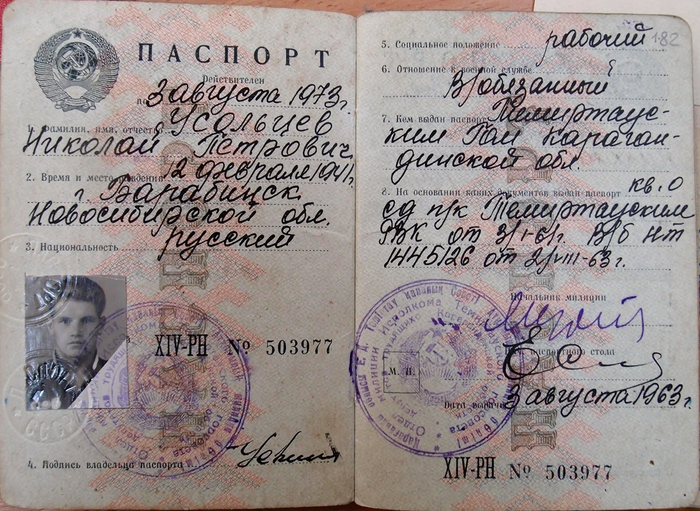 ПАСПОРТ
Действителен
по 3 августа 1973 г.
1. Фамилия, имя, отчество Усольцев
Николай Петрович
2. Время и место рождения 12 февраля 1941 г.
г. Барабинск
Новосибирской обл.
3. Национальность русский
XIV-РН № 503977
4. Подпись владельца паспорта
5. Социальное положение рабочий
182
6. Отношение к военной службе
В/обязанный
7. Кем выдан паспорт Темиртаус-
ким Гом Караган-
динской обл.
8. На основании каких документов выдан паспорт
Темиртауским
РВК от В/б НТ
от 2/VIII-63 г.
Начальник милиции
паспортного стола
М. П.
Дата выдачи 3 августа 1963 г.
XIV-РН № 503977